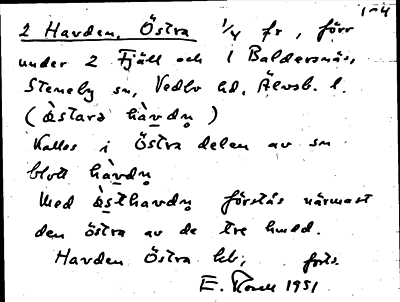 1-4
2 Havden, Östra 1/4 fr, förr
under 2 Fjäll och 1 Baldersnäs,
Steneby sn, Vedbo hd, Älvsb. l.
(àstarə hàvdn̥)
Kallas i Östra delen av sn
blott hàvdn̥
Med àsthavdn̥ förstås närmast
den östra av de tre hmed.
Havden Östra bl, forts.
E. 1951